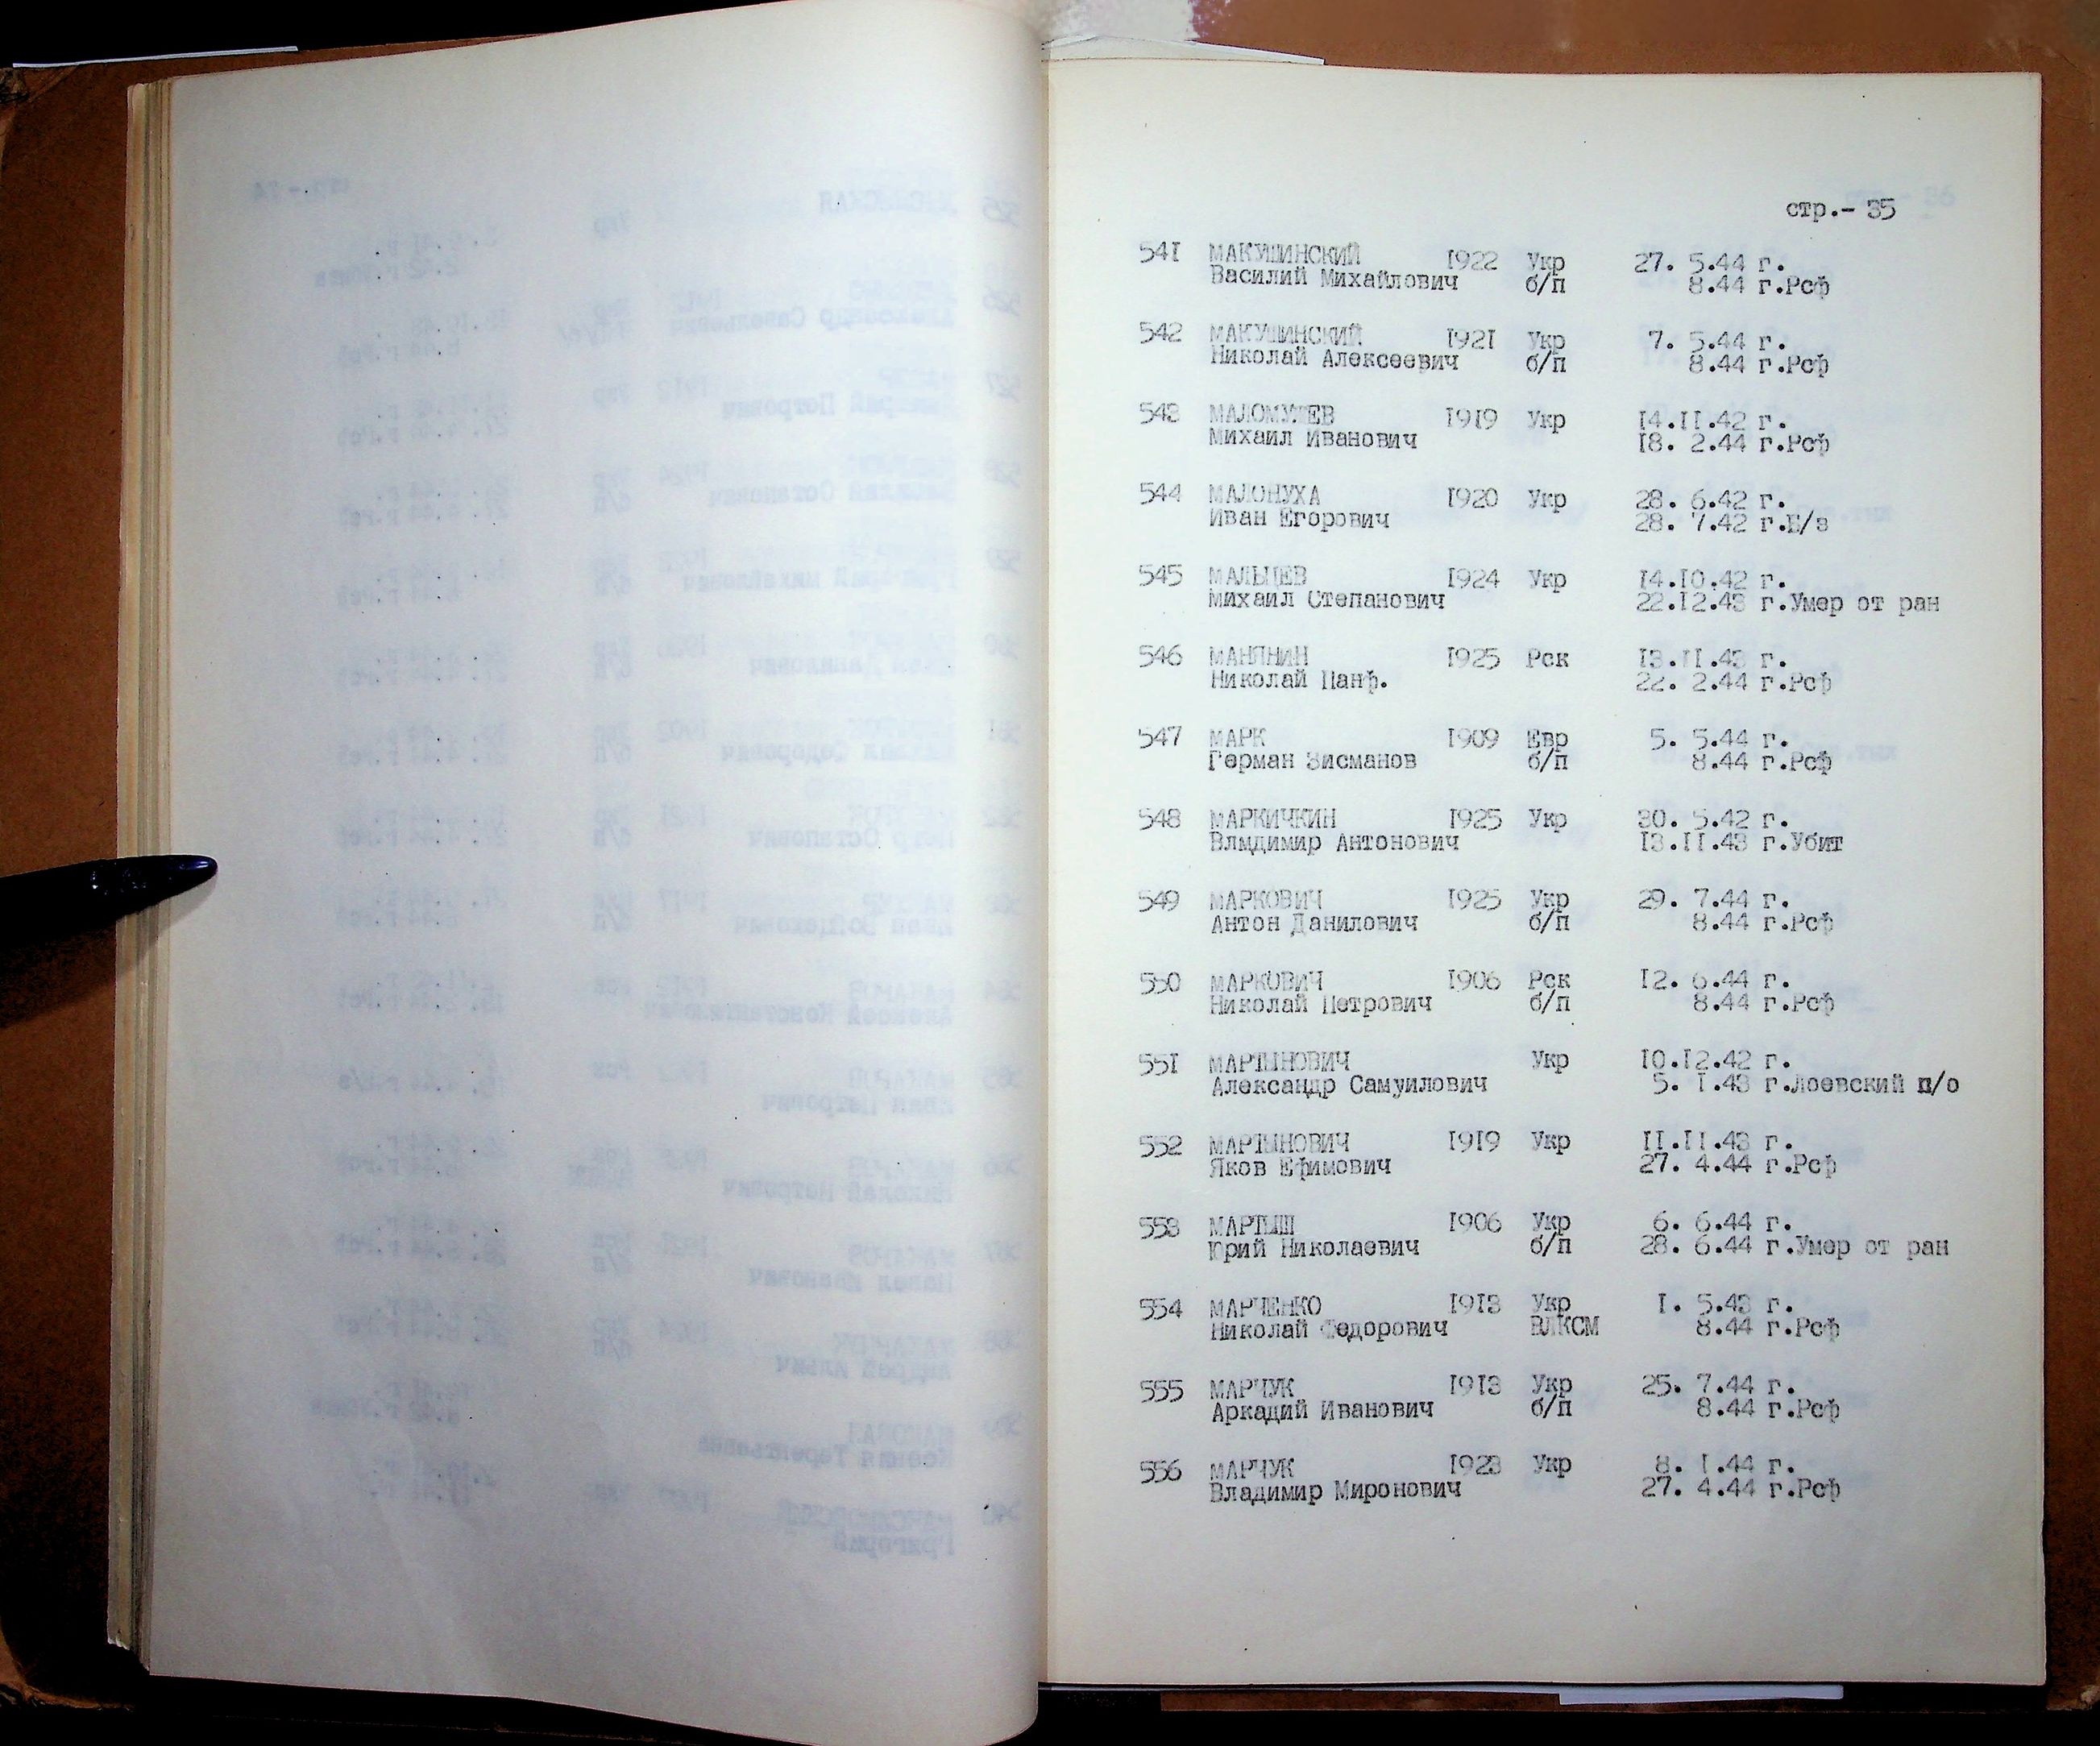 стр.- 35
541 МАКУШИНСКИЙ 1922 Укр 27. 5.44 г.
Василий Михайлович б/п 8.44 г.Рсф
542 МАКУШИНСКИЙ 1921 Укр 7. 5.44 г.
Николай Алексеевич б/п 8.44 г.Рсф
543 МАЛОМУЖЕВ 1919 Укр 14.11.42 г.
Михаил Иванович 18. 2.44 г.Рсф
544 МАЛОНУХА 1920 Укр 28. 6.42 г.
Иван Егорович 28. 7.42 г.Б/з
545 МАЛЬЦЕВ 1924 Укр 14.10.42 г.
Михаил Степанович 22.12.43 г.Умер от ран
546 МАНЯНИН 1925 Рск 13.11.43 г.
Николай Панф. 22. 2.44 г.Рсф
547 МАРК 1909 Евр 5. 5.44 г.
Герман Зисманов б/п 8.44 г.Рсф
548 МАРКИЧКИН 1925 Укр 30. 5.42 г.
Влмдимир Антонович 13.11.43 г.Убит
549 МАРКОВИЧ 1925 Укр 29. 7.44 г.
Антон Данилович б/п 8.44 г.Рсф
550 МАРКОВИЧ 1906 Рск 12. 6.44 г.
Николай Петрович б/п 8.44 г.Рсф
551 МАРТЫНОВИЧ Укр 10.12.42 г.
Александр Самуилович 5. 1.43 г.Лоевский п/о
552 МАРТЫНОВИЧ 1919 Укр 11.11.43 г.
Яков Ефимович 27. 4.44 г.Рсф
553 МАРТЫШ 1906 Укр 6. 6.44 г.
Юрий Николаевич б/п 28. 6.44 г.Умер от ран
554 МАРЧЕНКО 1913 Укр 1. 5.43 г.
Николай Федорович ВЛКСМ 8.44 г.Рсф
555 МАРЧУК 1913 Укр 25. 7.44 г.
Аркадий Иванович б/п 8.44 г.Рсф
556 МАРЧУК 1923 Укр 8. 1.44 г.
Владимир Миронович 27. 4.44 г.Рсф